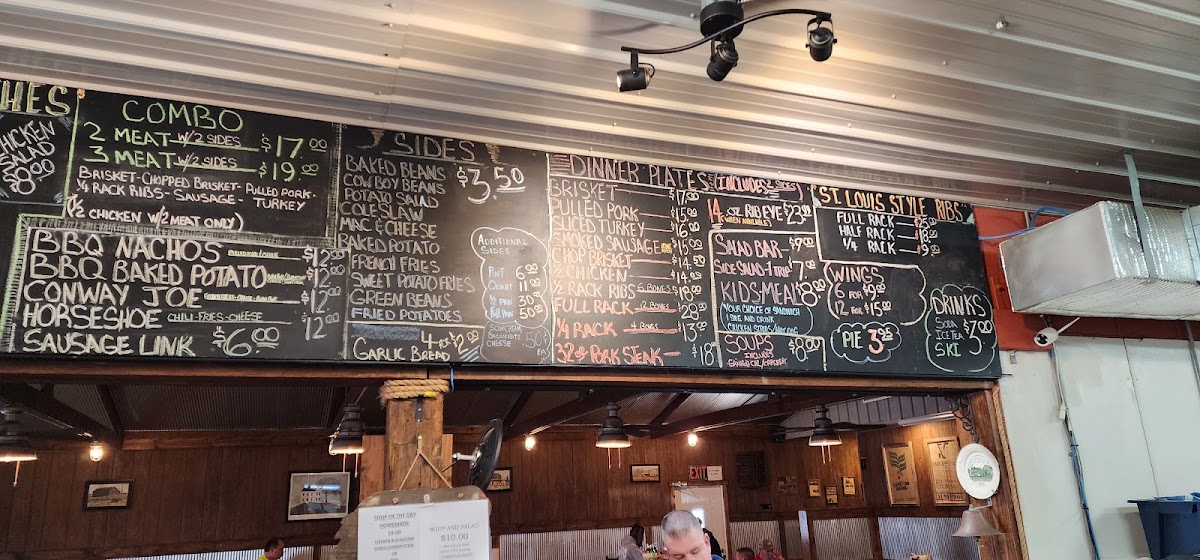 HES
CHICKEN
SALAD
COMBO
2 MEAT W/2 SIDES $17.00
3 MEAT W/2 SIDES $19.00
BRISKET-CHOPPED BRISKET-PULLED PORK-
1/4 RACK RIBS-SAUSAGE-TURKEY
(1/2 CHICKEN W/2 MEAT ONLY)
BBQ NACHOS $12.00
BBQ BAKED POTATO $12.00
CONWAY JOE $12.00
HORSESHOE CHILI-FRIES-CHEESE $12.00
SAUSAGE LINK $6.00
SIDES
$3.50
BAKED BEANS
COWBOY BEANS
POTATO SALAD
COLESLAW
MAC & CHEESE
BAKED POTATO
FRENCH FRIES
SWEET POTATO FRIES
GREEN BEANS
FRIED POTATOES
GARLIC BREAD 4 FOR $2.00
ADDITIONAL
SIDES
PINT
QUART
1/2 PAN
FULL PAN
SOUR CREAM
CHEESE 50¢ EA
DINNER PLATES INCLUDES 2 SIDES
BRISKET $17.00
PULLED PORK $15.00
SLICED TURKEY $16.00
SMOKED SAUSAGE $15.00
CHOP BRISKET $14.50
1/2 CHICKEN $14.00
1/2 RACK RIBS 6 BONES $18.00
FULL RACK 12 BONES $28.00
1/4 RACK 4 BONES $13.00
32 oz PORK STEAK $18
14 OZ RIB EYE $23.00
WHEN AVAILABLE
SALAD BAR $9.00
SIDE SALAD-1 TRIP $7.00
KIDS-MEAL $8.00
*YOUR CHOICE OF SANDWICH
1 SIDE AND DRINK
CHICKEN STRIPS
SOUPS $8.00
INCLUDES
"ST. LOUIS STYLE RIBS"
FULL RACK $25.00
HALF RACK
1/4 RACK $9.50
WINGS
6 FOR $9.00
12 FOR $15.00
PIE $3.95
DRINKS
SODA
ICE TEA
SKI
$3.00
EXIT
SOUP OF THE DAY
HOMEMADE
SOUP AND SALAD
$10.00